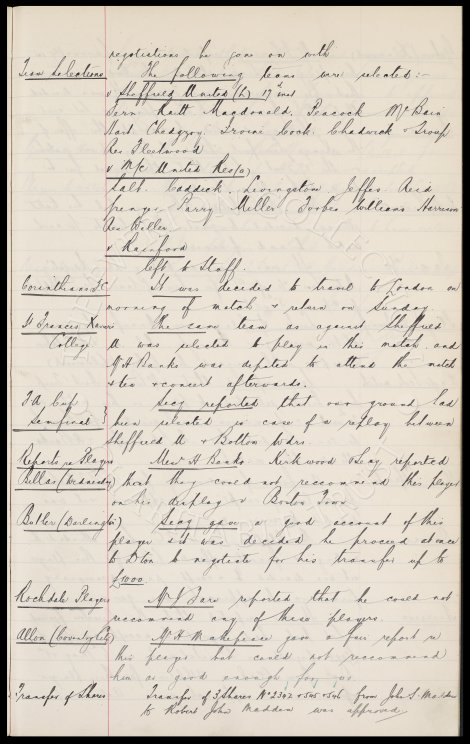 negotiations be gone on with
Team Selections. The following teams were selected:-
v Sheffield United (h) 17th inst
Fern Raitt Macdonald. Peacock McBain
Hart Chedgzoy. Irvine Cock. Chadwick & Troup
Res Fleetwood
v M/c United Res (a)
Salt. Caddick. Livingston Jeffes Reid
Parry Miller Forbes Williams Harrison
Res Weller
v Rainford
left to Staff.
Corinthians F.C It was decided to travel to London on
morning of match & return on Sunday
St Francis Xavier The same team as against Sheffield
College U was selected to play in this match and
Mr H Banks was deputed to attend the match
& tea & concert afterwards.
F A Cup Secy reported that our ground had
Semifinal } been selected in case of a replay between
Sheffield U & Bolton Wdrs.
Reports re Players Messrs H Banks. Kirkwood & Secy reported
(Wednesday) that they could not recommend this player
on his display v Boston Town
Butler (Darlington) Secy gave a good account of this
player & it was decided he proceed at once
to D'ton to negotiate for his transfer up to
£1000.
Rochdale Players Mr J Fare reported that he could not
recommend any of these players.
Allon (Coventry City) Mr A Wakefield gave a fair report re
this player but could not recommend
him as good enough for us.
Transfer of Shares Transfer of 3 Shares No 2342 & 545 & 546 from John S. Madden
to Robert John Madden was approved